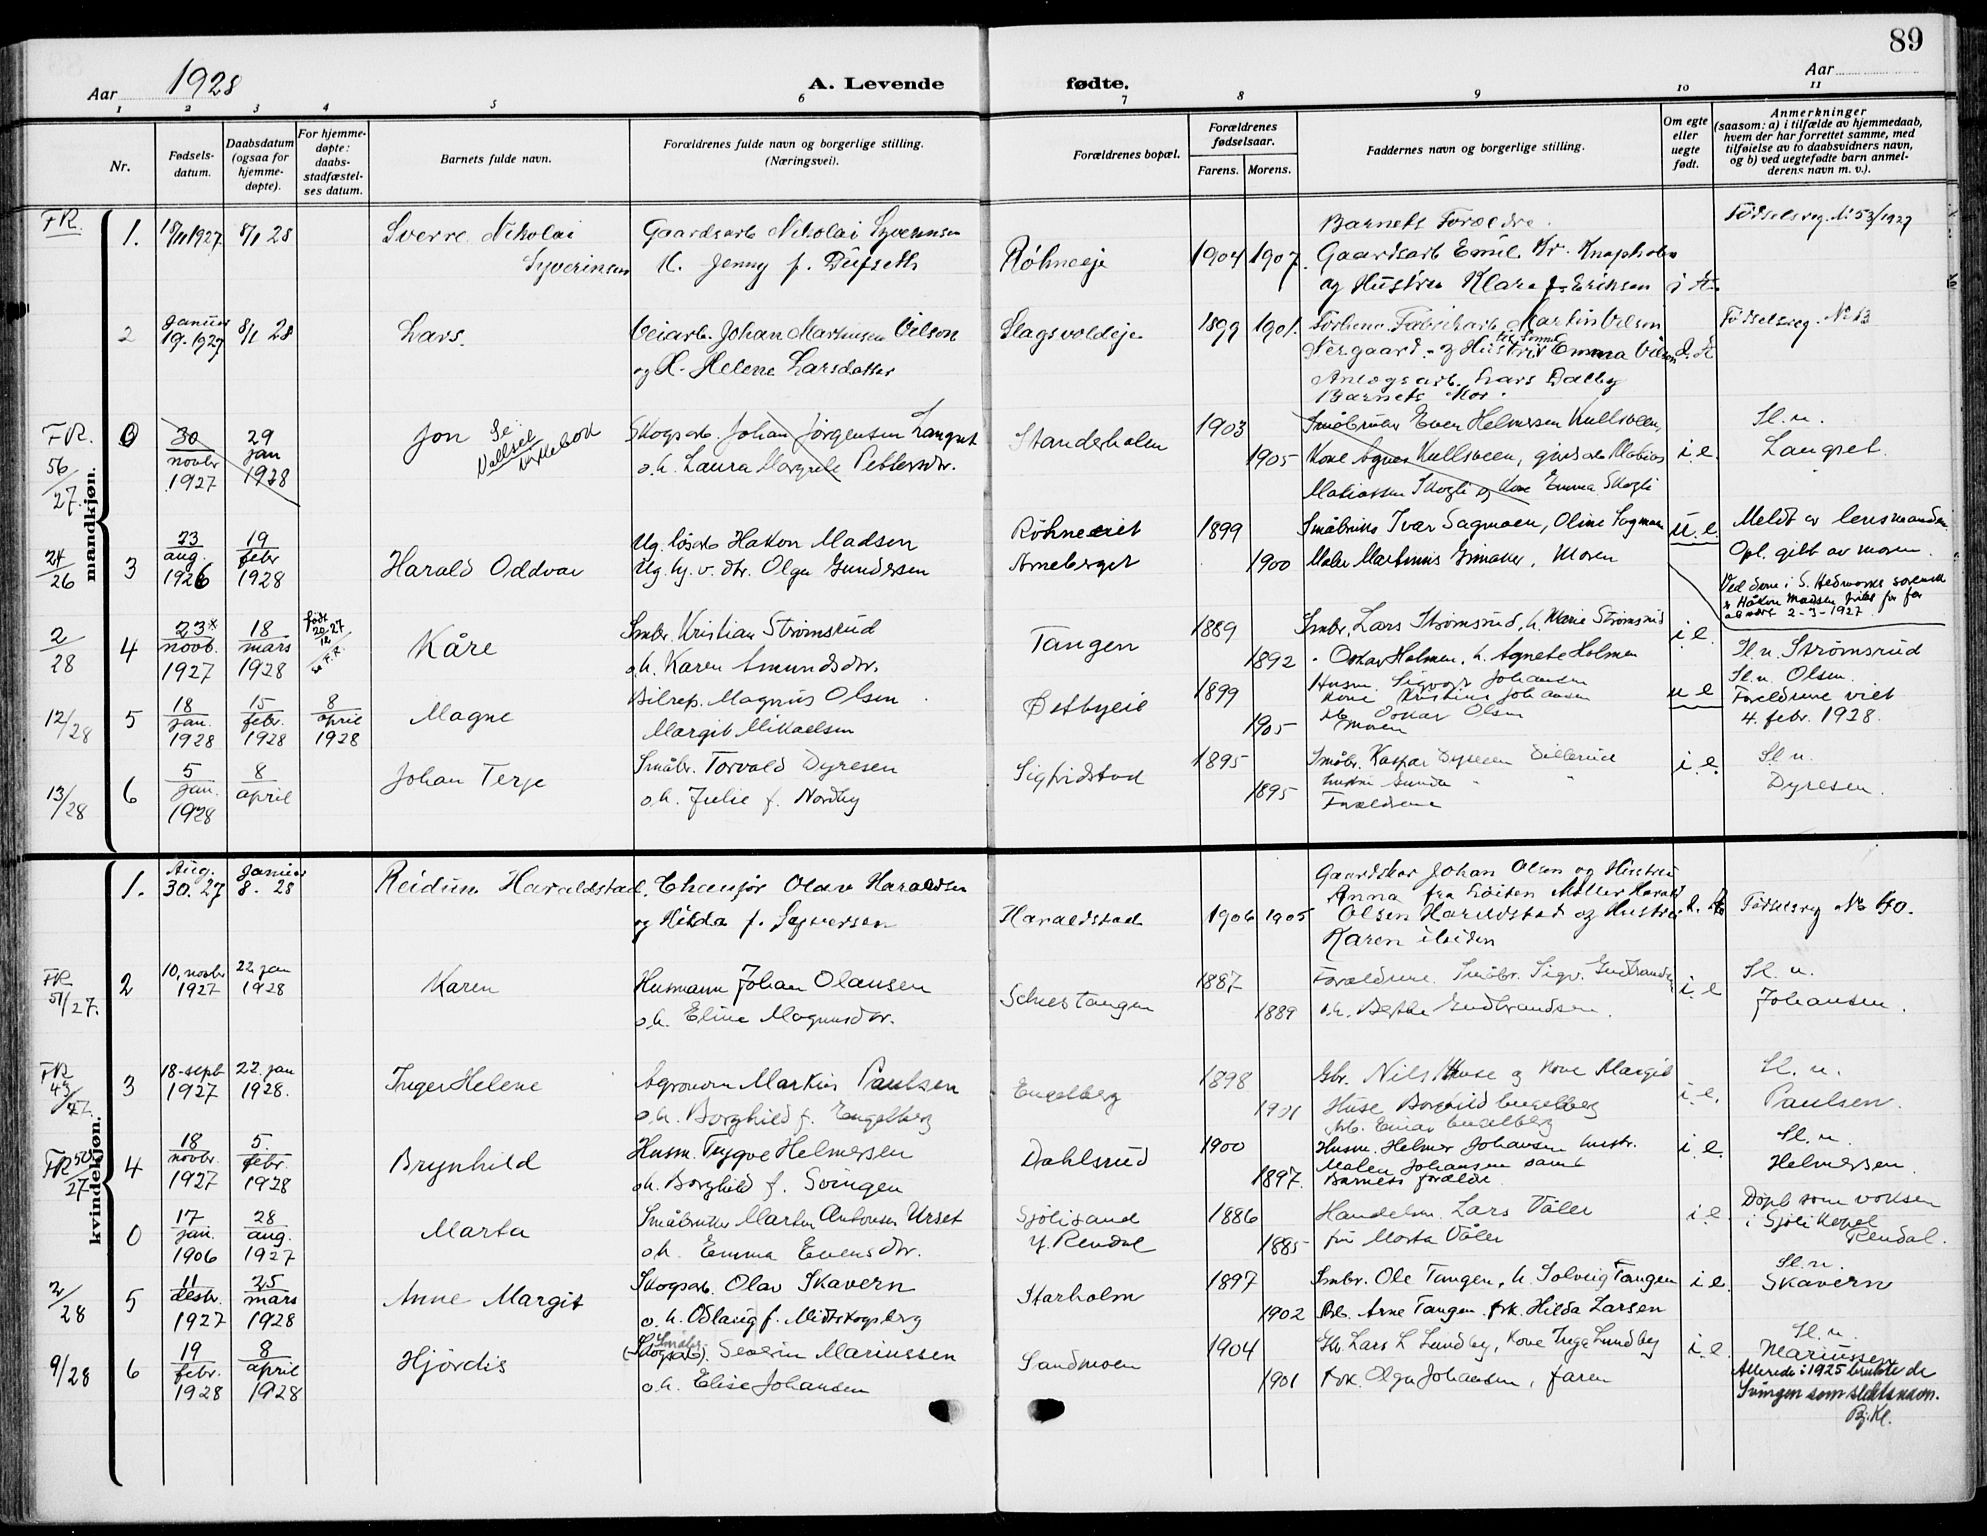 89
Aar 1928
A. Levende fødte.
Aar
1 2 3 4 5 6 7 8 9 10 11
Nr.
Fødsels-
datum.
Daabsdatum
(ogsaa for
hjemme-
døpte).
For hjemme-
døpte:
daabs-
stadfæstel-
ses datum.
Barnets fulde navn.
Forældrenes fulde navn og borgerlige stilling.
(Næringsvei).
Forældrenes bopæl.
Forældrenes
fødselsaar.
Farens. Morens.
Faddernes navn og borgerlige stilling.
Om egte
eller
uegte
født.
Anmerkninger
(saasom: a) i tilfælde av hjemmedaab,
hvem der har forrettet samme, med
tilføielse av to daabsvidners navn,
og b) ved uegtefødte barn anmel-
derens navn m. v.).
mandkjøn.
FR.
1.
8/1 28
Sverre Nikolai
Syverinsen
Gaardsarb Nikolai Syverinsen
H. Jenny f. Dufseth
Røhneeje
1904 1907.
Barnets Forældre.
Gaardsarb Emil Kr. Knapholen
og Hustru Klara f. Eriksen
Fødselsreg. № 53/1927
2
Januar
19.-1927
8/1 28
Lars.
Veiarb. Johan Martinsen Vilson
og H. Helene Larsdatter
Slagsvoldeje
1899 1901.
Fabrikarb. Martin Vilson
Nergaard - og Hustru Emma Vilson
Anlegsarb. Lars Dalby
Barnets Mor.
Fødselsreg. № 13
FR.
56/27.
0
30
novbr
1927
29
jan
1928
Jon
Skogsarb. Johan Jørgensen Langset
o. h. Laura Margrete Pettersdtr.
Standerholen
1903
1905
Småbruker Even Helmersen Kullsveen,
Kone Agnes Kullsveen,
Matiassen Skogli og Kone Emma Skogli
i. e.
Sl. n.
Langset.
24/26
3
23
aug.
1926
19
febr
1928
Harald Oddvar
Ug. løsarb Hakon Madsen
Ug. tj. v. dtr. Olga Gundersen
Røhneeiet
Arneberget
1899
1900
Småbruks Ivar Sagmoen, Oline Sagmoen
Maler Martinius, Moren
u. e.
Meldt av lensmanden
Opl. gitt av moren.
Ved dom i S. Hedmarks sorensk
Håkon Madsen
2-3-1927.
2/28
4
23*
novb.
1927
18
mars
1928
født
20/12 27
F.R.
Kåre
Smbr. Kristian Strømsrud
o. h. Karen Amundsdtr.
Tangen
1889
1892
Smbr. Lars Strømsrud, h. Marie Strømsrud
" Oskar Holmen, h. Agnete Holmen
i. e.
Sl. n. Strømsrud
12/28
5
18
jan.
1928
15
febr.
1928
8
april
1928
Magne
Bilrep. Magnus Olsen
Margit Mikaelsen
Østbyeie
1899
1905
Husm. Sigvart Johansen
Kone Kristine Johansen
Oskar Olsen
Moren
u e
Sl. n. Olsen.
Foreldrene viet
4. febr. 1928.
13/28
6
5
jan.
1928
8
april
Johan Terje
Småbr. Torvald Dyresen
o. h. Julie f. Nordby
Sigfridstad
1895
1895
Småbr. Kaspar Dyresen Dillerud
Gunda
Foreldrene
i. e.
Sl. n.
Dyresen.
kvindekjøn.
1.
Aug.
30. 27
Januar
8. 28
Reidun Haraldstad.
Chaufør Olav Haraldsen
og Hilda f. Syversen
Haraldstad
1906 1905
Gaardskar Johan Olsen og Hustru
Anna fra Løiten Møller Harald
Olsen Haraldstad og Hustru
Karen
Fødselsreg № 40.
FR
51/27.
2
10. novbr
1927
22 jan
1928
Karen
Husmann Johan Olausen
o. h. Eline Magnusdtr.
Schiestangen
1887
1889
Foreldrene. Småbr. Sigv. Gudbrandsen
o. h. Berthe Gudbrandsen.
i. e
Sl. n.
Johansen.
FR
43/27.
3
18-septb
1927
22. jan
1928.
Inger Helene
Agronom Markus Paulsen
o. h. Borghild f. Engelberg
Engelberg
1898
1901
Gbr. Nils Huse og Kone Margit
Huse Borghild Engelberg
Einar Engelberg
i. e.
Sl. n.
Paulsen.
FR 50/27
4
18
novbr.
1927
5
febr.
1928
Brynhild
Husm. Trygve Helmersen
o. h. Borghild f. Svingen
Dahlsrud
1900
1897.
Husm. Helmer Johansen hustr.
Malen Johansen samt
Barnets forældre.
i e.
Sl. n.
Helmersen.
0
17
jan.
1906
28
aug.
1927
Marta
Småbruker Martin Antonsen Urset
o. h. Emma Evensdtr.
Sjølisand
Y. Rendal
1886
1885
Handelsm. Lars Våler
fru Marta Våler
i. e.
Døpt som voksen
i Sjøli Kapel
Rendal.
2/28
5
11
desbr.
1927
25
mars
1928
Anne Margit
Skogsarb. Olav Skavern
o. h. Odlaug f. Midtskogsberg
Starholm
1897
1902
Smbr. Ole Tangen, h. Solveig Tangen
Arne Tangen. frk. Hilda Larsen
i e.
Sl. n.
Skavern
9/28
6
19
febr.
1928
8
april
1928
Hjördis
Småbr.
(Skogsarb). Severin Mariussen
o. h. Elise Johansen
Sandmoen
1904
1901
Lars L Lundby, Kone Inga Lundby
Frk. Olga Johansen, faren
i. e.
Sl. n.
Mariussen
Allerede i 1925 brukte de
Svingen som slektsnavn.
Bj. Kl.